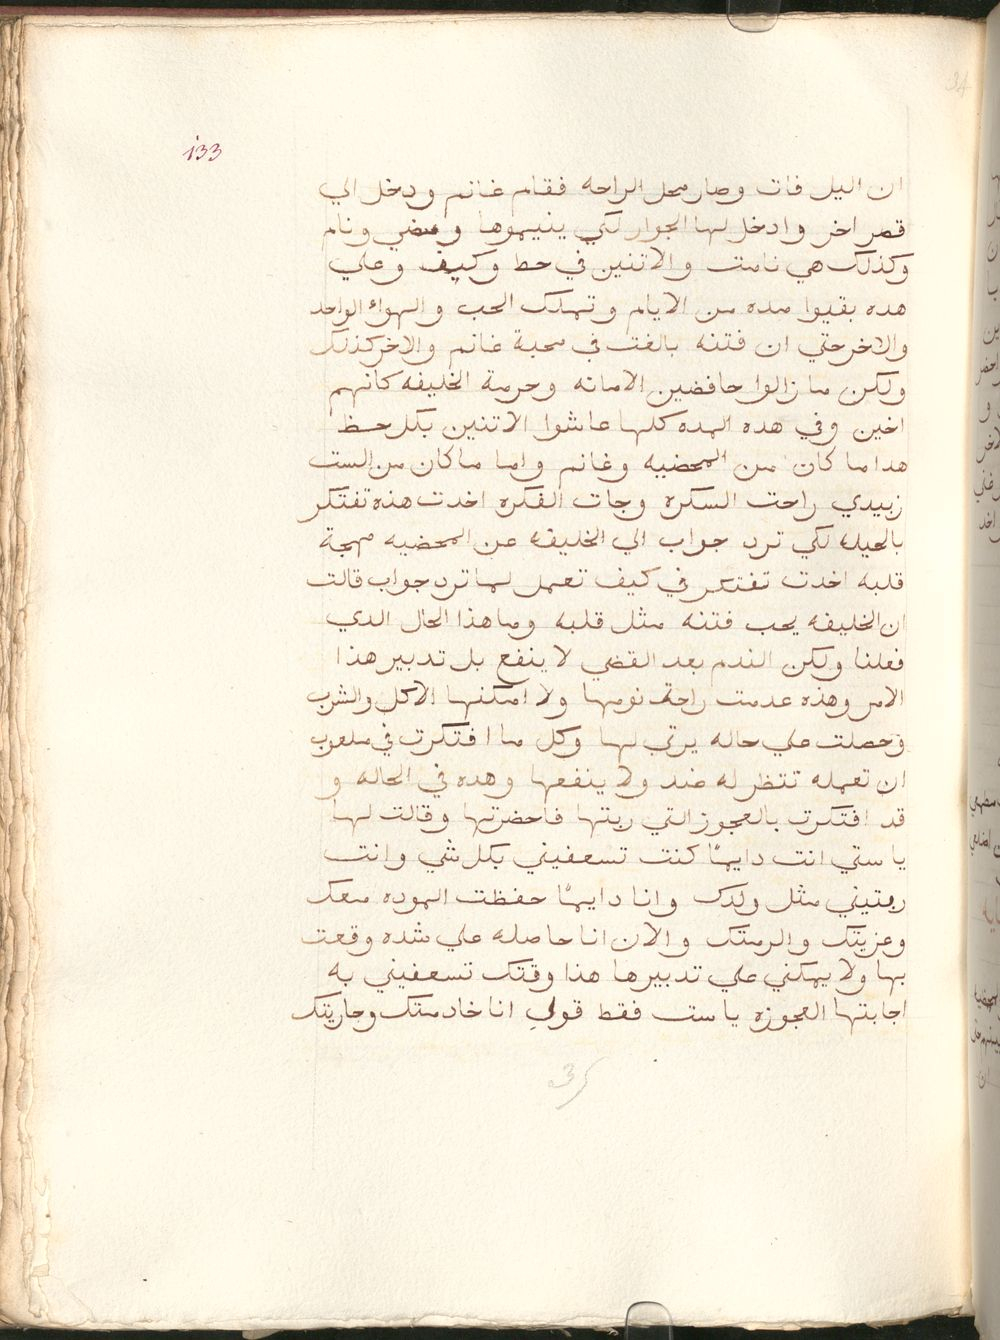 133
ان اليل فات وصار محل الراحه فقام غانم ودخل الي
قصر اخر وادخل لها الجوار لكي ينيموها ومضي ونام
وكذلك هي نامت والاتنين في حط وكيف وعلي
هده بقيوا مده من الايام وتملك الحب والهواء الواحد
والاخر حتي ان فتنه بالغت في محبة غانم والاخر كذلك
ولكن ما زالوا حافضين الامانه وحرمة الخليفه كانهم
اخين وفي هده المده كلها عاشوا الاتنين بكل حظ
هدا ما كان من المحضيه وغانم واما ما كان من الست
زبيدي راحت السكره وجات الفكره اخدت هذه تفتكر
بالحيله لكي ترد جواب الي الخليفه عن المحضيه مهجة
قلبه اخدت تفتكر في كيف تعمل لما ترد جواب قالت
ان الخليفه يحب فتنه مثل قلبه وما هذا الحال الدي
فعلنا ولكن الندم بعد القضي لا ينفع بل تدبير هذا
الامر وهذه عدمت راحة نومها ولا امكنها الاكل والشرب
وحصلت علي حاله يرتي لها وكل ما افتكرت في ملعوب
ان تعمله تنظر له ضد ولا ينفعها وهده في الحاله و
قد افتكرت بالعجوز التي ربتها فاحضرتها وقالت لها
يا ستي انت دايمًا كنت تسعفيني بكل شي وانت
ربتيني مثل ولدك وانا دايمًا حفظت الموده معك
وعزيتك والرمتك والان انا حاصله علي شده وقعت
بها ولا يمكني علي تدبيرها هذا وقتك تسعفيني به
اجابتها العجوزه يا ست فقط قولي انا خادمتك وجاريتك
35